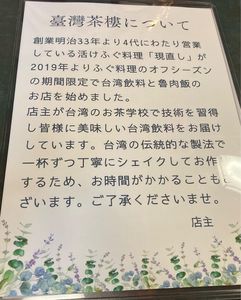 臺灣茶樓について
創業明治33年より4代にわたり営業
している活けふぐ料理「現直し」が
2019年よりふぐ料理のオフシーズン
の期間限定で台湾飲料と魯肉飯の
お店を始めました。
店主が台湾のお茶学校で技術を習得
し皆様に美味しい台湾飲料をお届け
しています。台湾の伝統的な製法で
一杯ずつ丁寧にシェイクしてお作り
するため、お時間がかることもご
ざいます。ご了承くださいませ。
店主